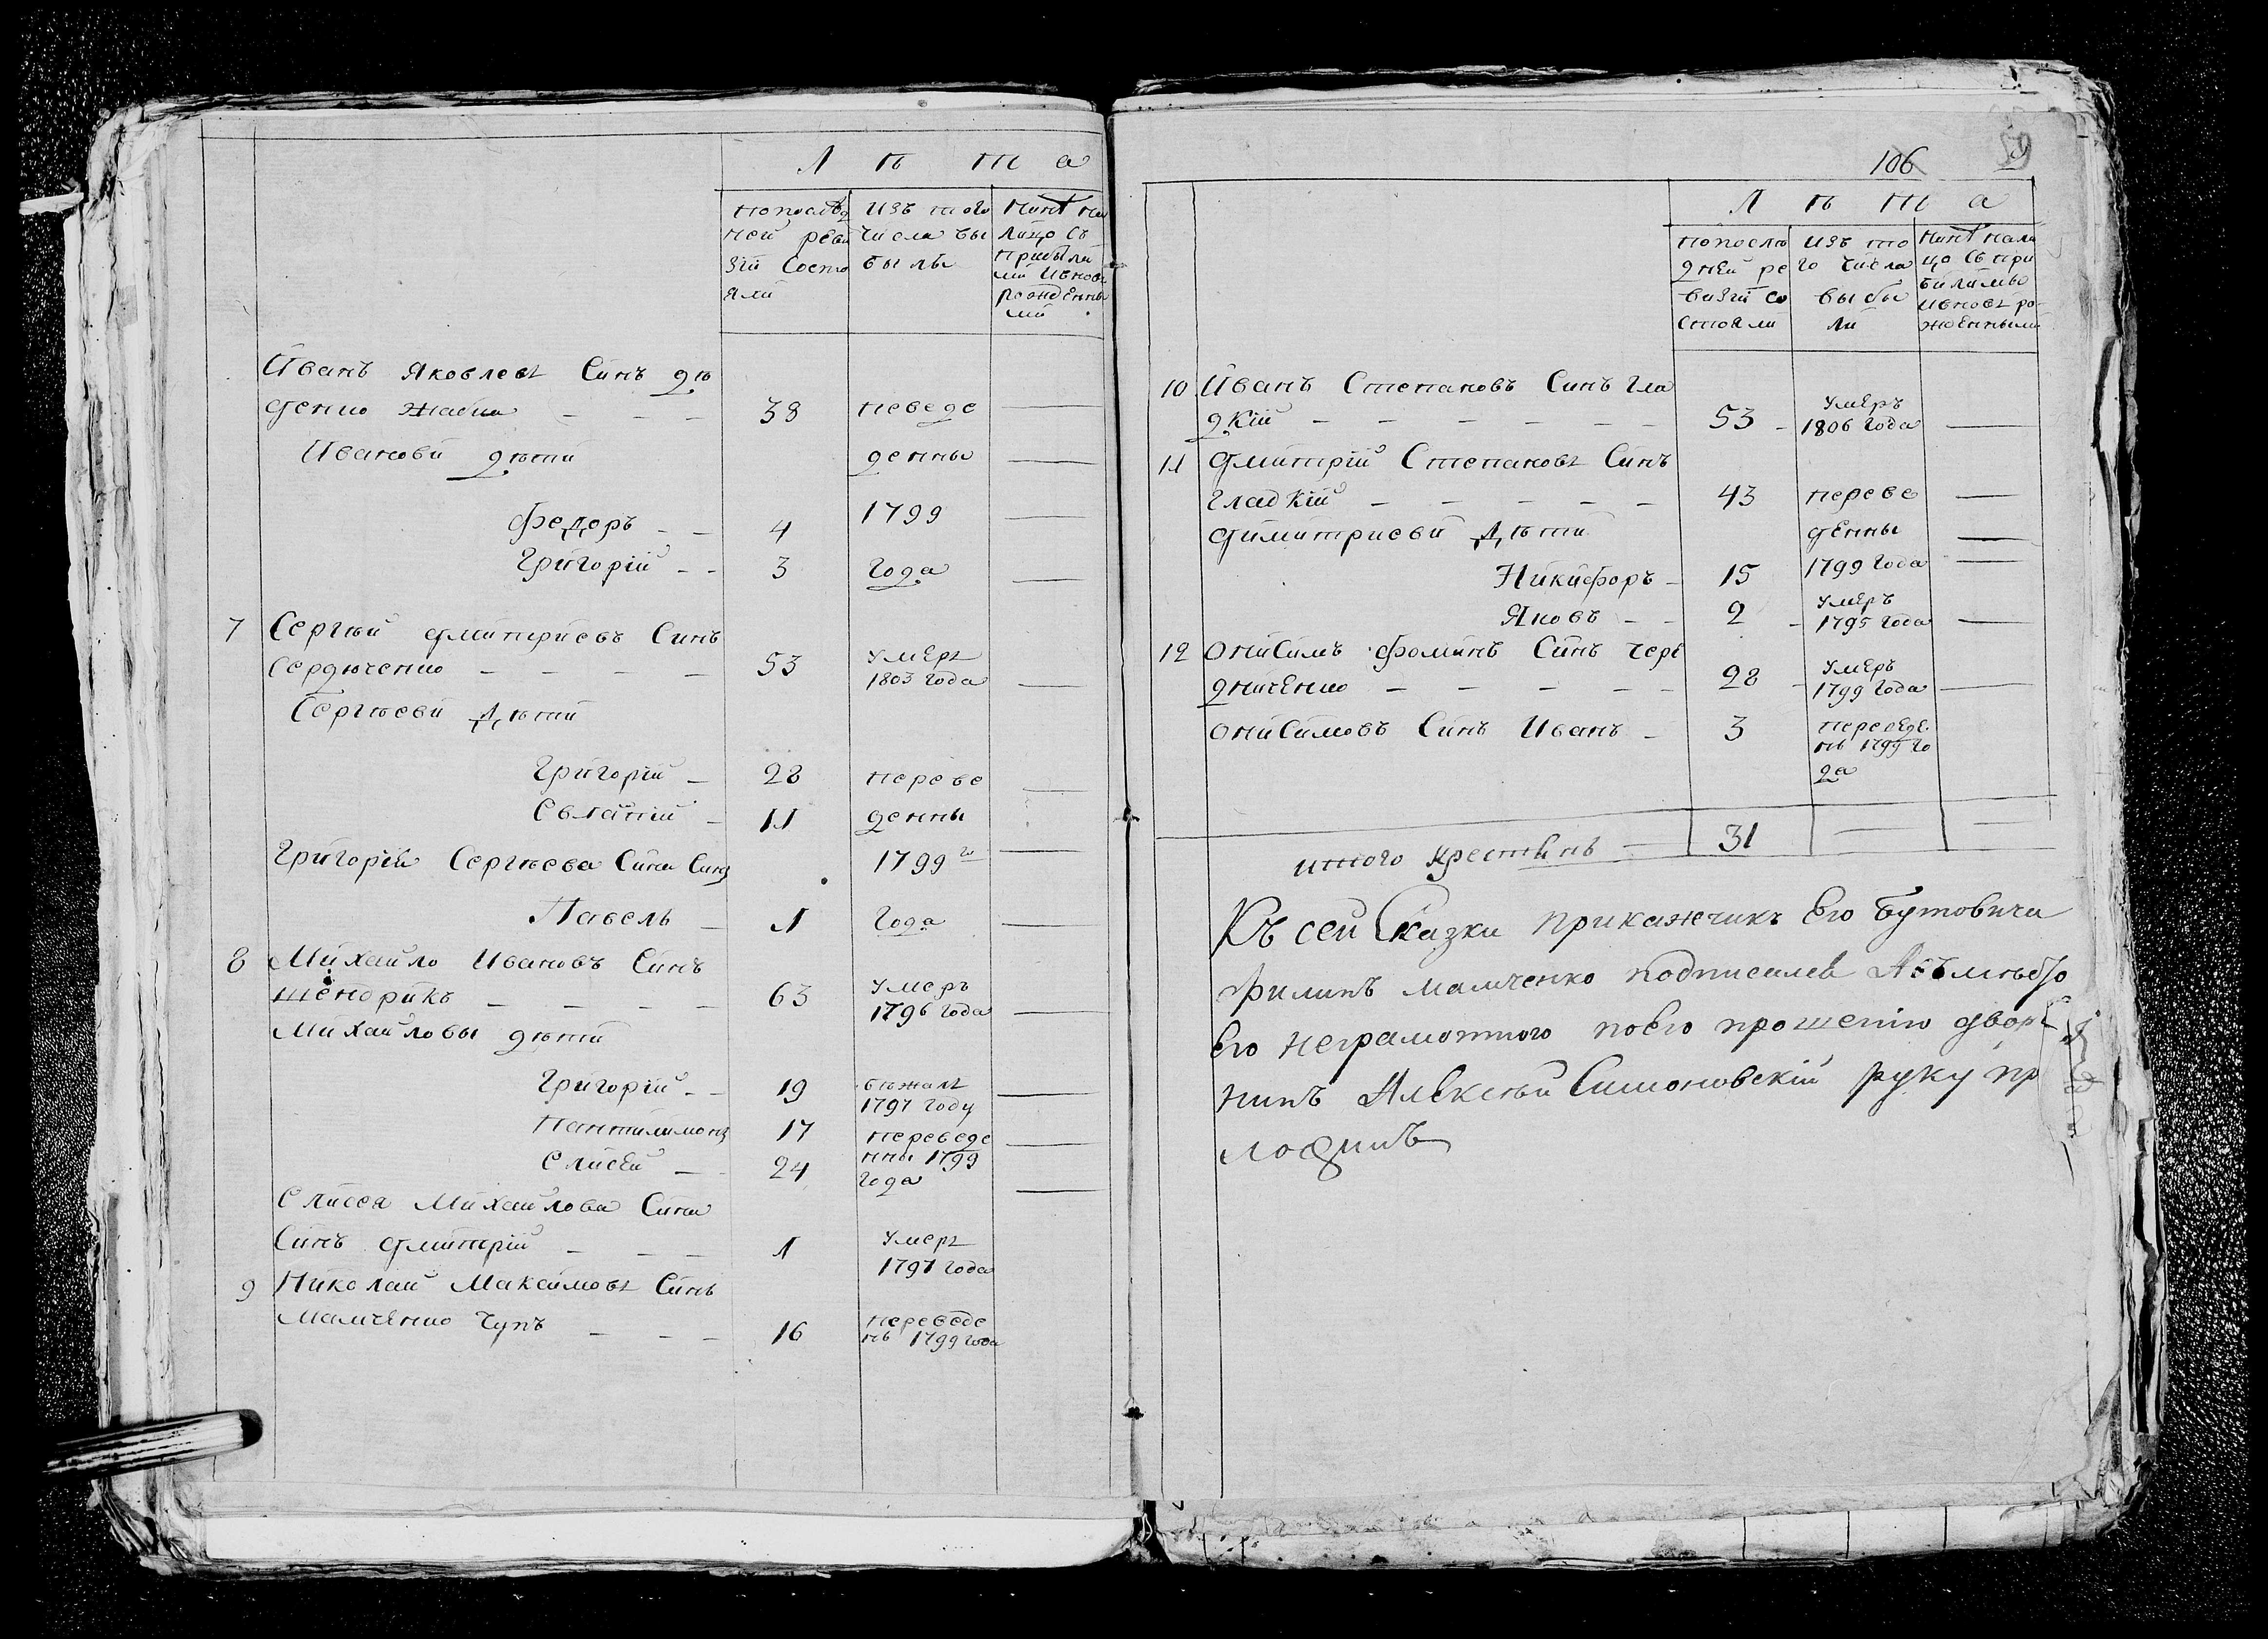 Лѣта
попослѣд изъ того нинѣ на
ней реви числа вы лицо съ
зіи состо были прибыли
яли ми ивновь
рожденны
ми
Иванъ Яковлевъ Синъ дю
денко жаби — — — 38 переве —
Иванови дѣти денны —
Федоръ — — 4 1799 —
Григорій — — 3 года —
7 Сергѣй Дмитріевъ Синъ
Сердюченко — — — — 53 умеръ
1803 года —
Сергѣеви Дѣти
Григорій — 28 переве —
Евланій — 11 денны
Григорія Сергѣева Сина Синъ 1799го —
Павелъ — 1 года —
8 Михайло Ивановъ Синъ
шендрикъ — — — — 63 умеръ
1796 года —
Михайловы дѣти
Григорій — — 19 бѣжалъ
1797 году —
Пантилимонъ 17 переведе —
Елисей — — 24 нны 1799
года —
Елисея Михайлова Сина
Синъ Дмитрій — — — 1 умеръ
1797 года
9 Николай Максимовъ Синъ
Мамченко Чупъ — — — 16 переведе
нъ 1799 года
106
59
Лѣта
попослѣ изъ то нинѣ нали
дней ре го числа цо съ при
визіи со выбы былимы
стояли ли ивновь ро
жденными
10 Иванъ Степановъ Синъ Гла
дкій — — — — — — 53 — умеръ
1806 года —
11 Дмитрій Степановъ Синъ
Гладкій — — — — — 43 переве —
Димитриеви Дѣти денны —
Никифоръ — 15 1799 года —
Яковъ — — 2 — умеръ
1795 года —
12 Онисимъ Фоминъ Синъ Чере
дниченко — — — — — 28 — умеръ
1799 года —
Онисимовъ Синъ Иванъ — 3 переведе
нъ 1799 го
да
итого крестянъ — 31 — —
Къ сей Сказки прикажчикъ Его Бутовича
Филипъ мамченко подписался Авъмѣсто
Его неграмотного поЕго прошенію двор
нинъ Алексѣй Симоновскій руку пр
ложилъ